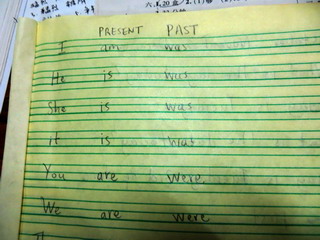 PRESENT PAST
I am was
He is was
She is was
it is was
You are were
We are were